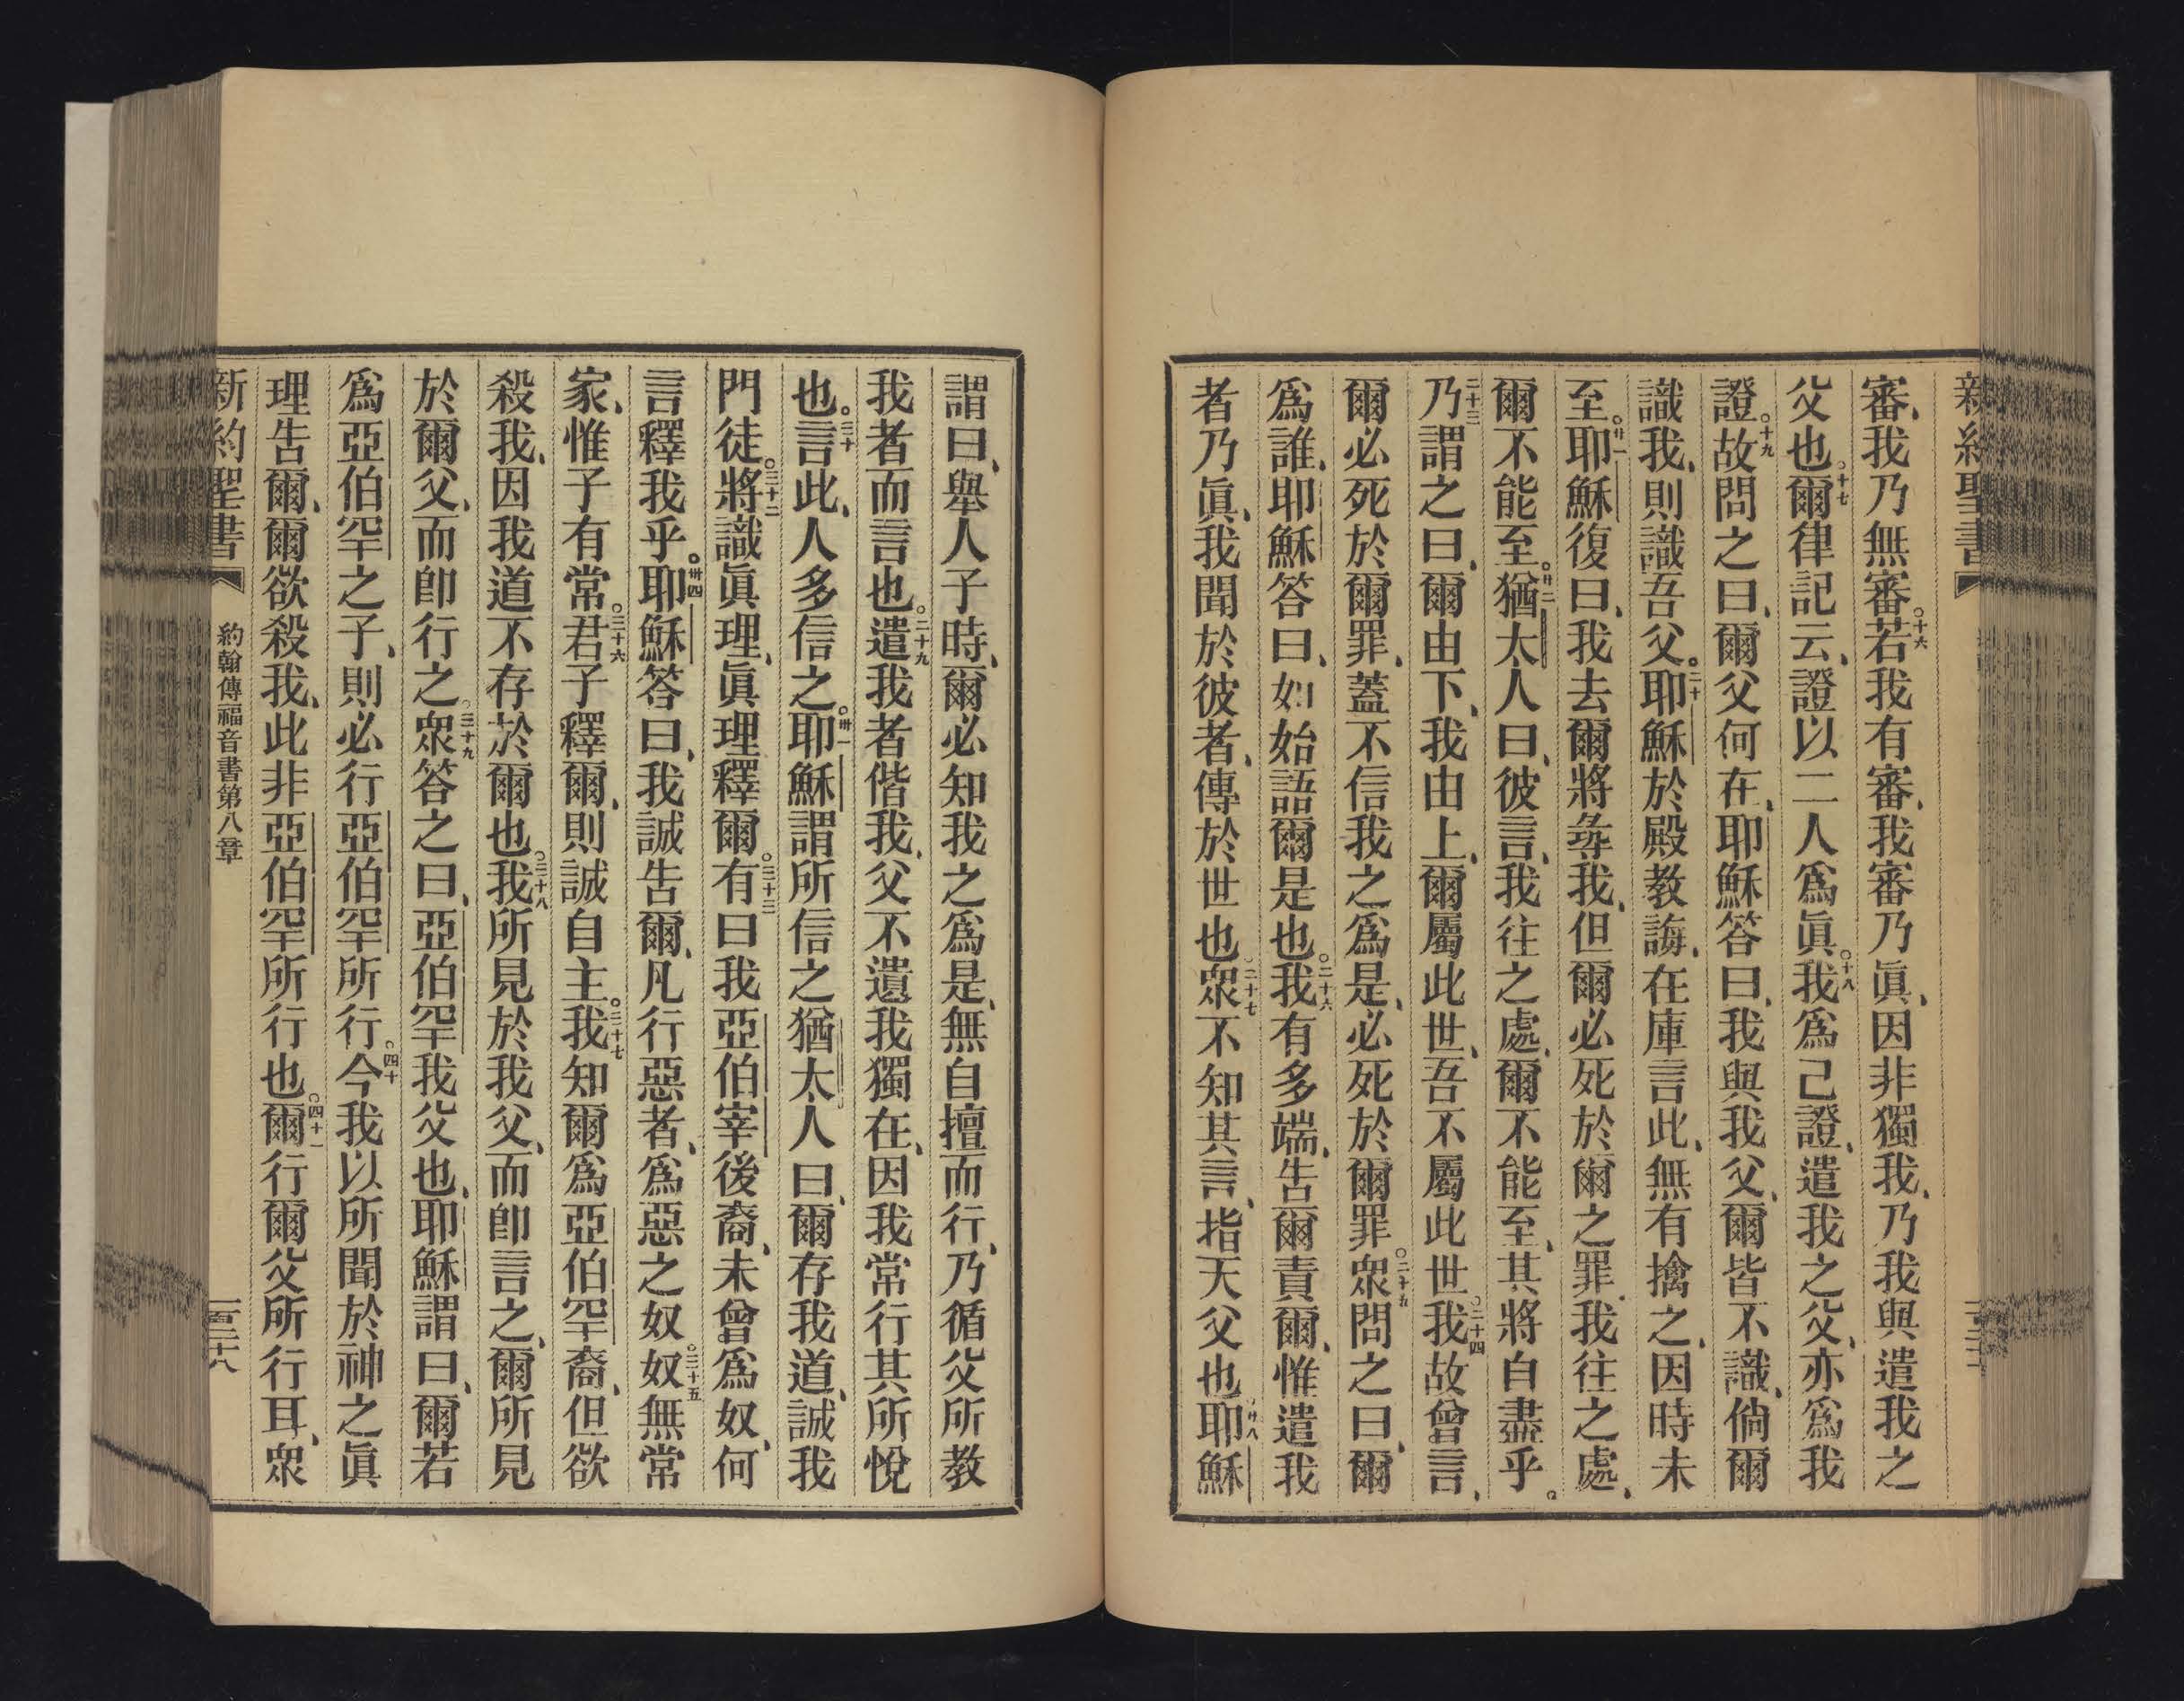 新約聖書
審、我乃無審。十六若我有審、我審乃眞、因非獨我、乃我與遣我之
父也。十七爾律記云、證以二人爲眞。十八我爲己證、遣我之父、亦爲我
證。十九故問之曰、爾父何在、耶穌答曰、我與我父、爾皆不識、倘爾
識我、則識吾父。二十耶穌於殿教誨、在庫言此、無有擒之、因時未
至。廿一耶穌復曰、我去爾將尋我、但爾必死於爾之罪、我往之處、
爾不能至。廿二猶太人曰、彼言、我往之處、爾不能至、其將自盡乎。
二十三乃謂之曰、爾由下、我由上、爾屬此世、吾不屬此世。二十四我故曾言、
爾必死於爾罪、蓋不信我之爲是、必死於爾罪。二十五衆問之曰、爾
爲誰、耶穌答曰、如始語爾是也。二十六我有多端、告爾責爾、惟遣我
者乃眞、我聞於彼者、傳於世也。二十七衆不知其言、指天父也。廿八耶穌
謂曰、舉人子時、爾必知我之爲是、無自擅而行、乃循父所教
我者而言也。二十九遣我者偕我、父不遺我獨在、因我常行其所悅
也。三十言此、人多信之。卅一耶穌謂所信之猶太人曰、爾存我道、誠我
門徒。三十二將識眞理、眞理釋爾。三十三有曰我亞伯宰後裔、未曾爲奴、何
言釋我乎。卅四耶穌答曰、我誠告爾、凡行惡者、爲惡之奴。三十五奴無常
家、惟子有常。三十六君子釋爾、則誠自主。三十七我知爾爲亞伯罕裔、但欲
殺我、因我道不存於爾也。三十八我所見於我父、而卽言之、爾所見
於爾父、而卽行之。三十九衆答之曰、亞伯罕我父也、耶穌謂曰、爾若
爲亞伯罕之子、則必行亞伯罕所行。四十今我以所聞於神之眞
理告爾、爾欲殺我、此非亞伯罕所行也。四十一爾行爾父所行耳、衆
新約聖書 約翰傳福音書第八章 一百二十八